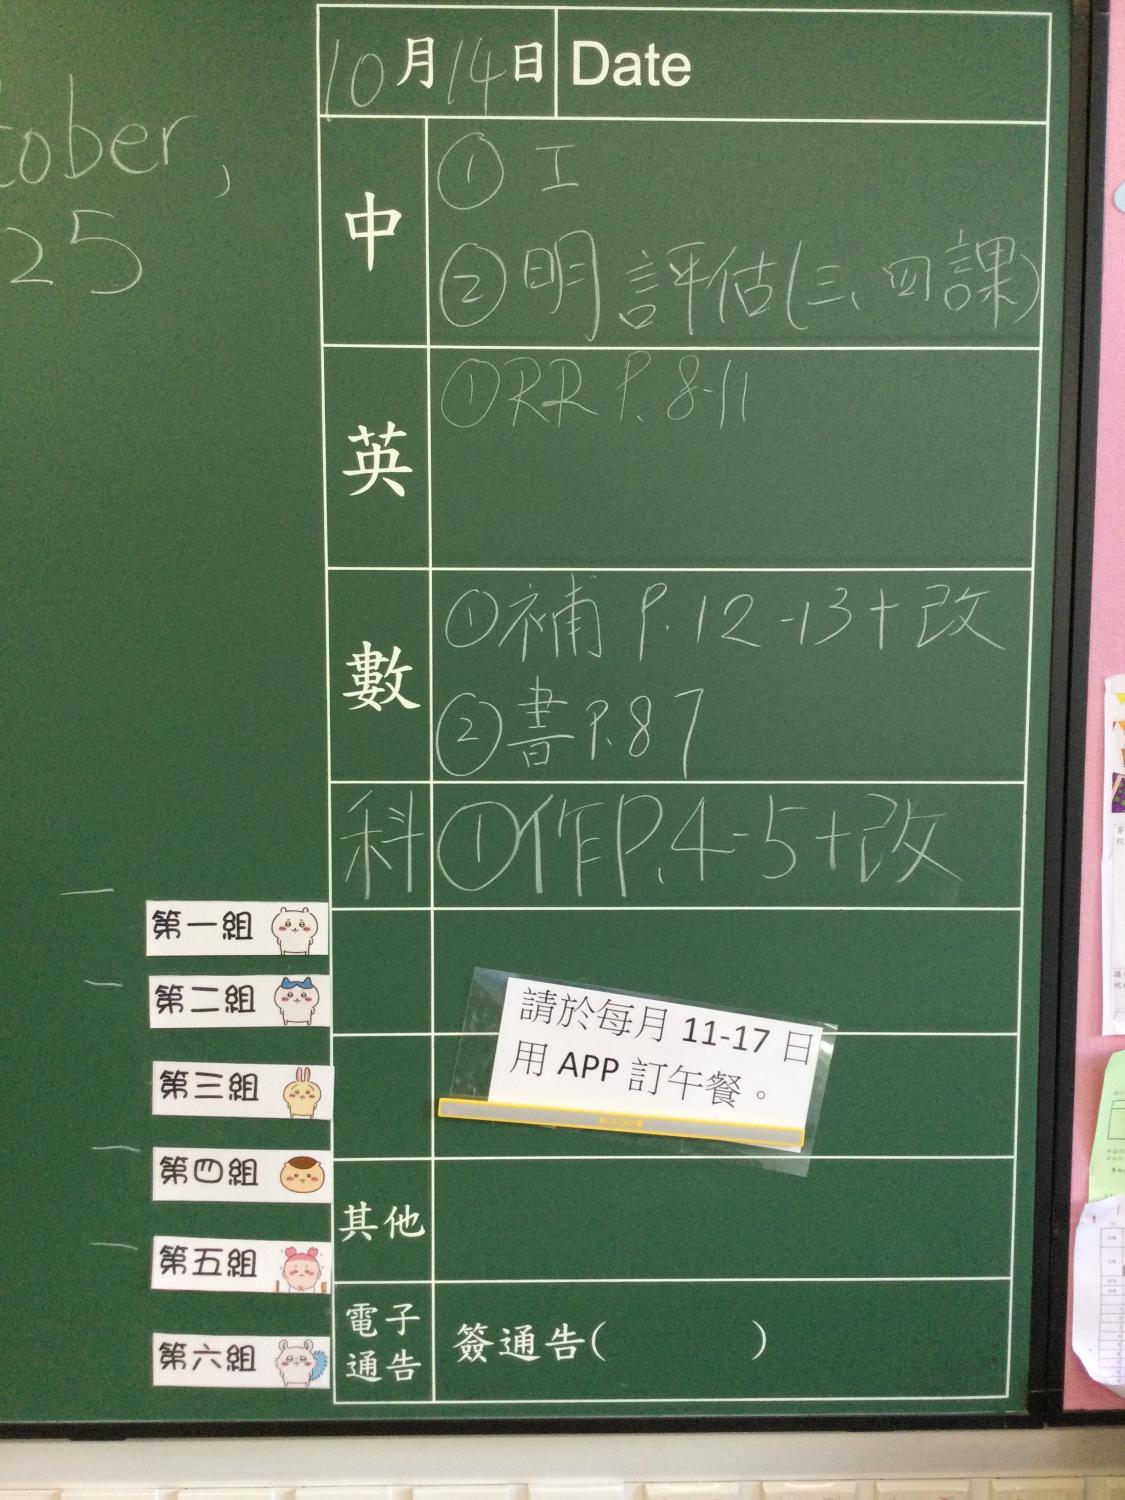 tober,
25
10月14日 Date
中
① 工
② 明評估(三、四課)
英
① RR P.8-11
數
① 補 P.12-13+改
② 書 P.87
科 ① 作 P.4-5+改
第一組
第二組
第三組
第四組
第五組
第六組
請於每月 11-17 日
用 APP 訂午餐。
其他
電子
通告
簽通告( )